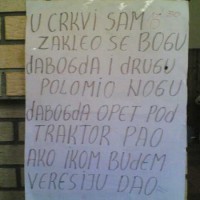 U CRKVI SAM
ZAKLEO SE BOGU
DABOGDA I DRUGU
POLOMIO NOGU
DABOGDA OPET POD
TRAKTOR PAO
AKO IKOM BUDEM
VERESIJU DAO